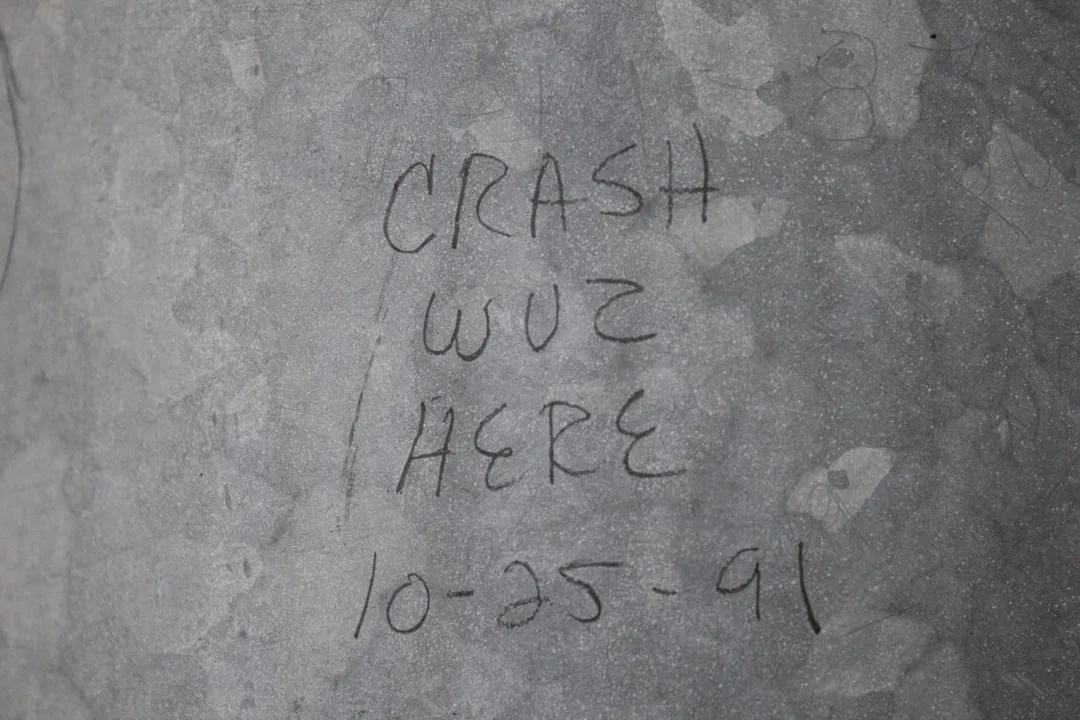 CRASH
WUZ
HERE
10-25-91